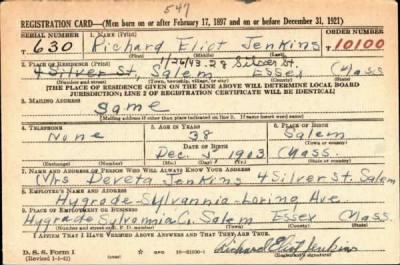 547
REGISTRATION CARD—(Men born on or after February 17, 1897 and on or before December 31, 1921)
SERIAL NUMBER 1. NAME (Print) ORDER NUMBER
T 630 Richard Eliot Jenkins 10100
(First) (Middle) (Last)
1/26/43-29 Silver St.
2. PLACE OF RESIDENCE (Print)
4 Silver St, Salem Essex Mass
(Number and street) (Town, township, village, or city) (County) (State)
[THE PLACE OF RESIDENCE GIVEN ON THE LINE ABOVE WILL DETERMINE LOCAL BOARD
JURISDICTION; LINE 2 OF REGISTRATION CERTIFICATE WILL BE IDENTICAL]
3. MAILING ADDRESS
Same
[Mailing address if other than place indicated on line 2. If same insert word same]
4. TELEPHONE 5. AGE IN YEARS 6. PLACE OF BIRTH
None 38 Salem
DATE OF BIRTH (Town or county)
Dec. 1913 Mass.
(Exchange) (Number) (Mo.) (Day) (Yr.) (State or country)
7. NAME AND ADDRESS OF PERSON WHO WILL ALWAYS KNOW YOUR ADDRESS
Mrs Jenkins 4 Silver St. Salem
8. EMPLOYER'S NAME AND ADDRESS
Hygrade-Sylvannia-Loring Ave
9. PLACE OF EMPLOYMENT OR BUSINESS
Hygrade Sylvannia Salem Essex Mass
(Number and street or R. F. D. number) (Town) (County) (State)
I AFFIRM THAT I HAVE VERIFIED ABOVE ANSWERS AND THAT THEY ARE TRUE.
D. S. S. Form 1
(Revised 1-1-42) GPO 16—21630-1 Richard Eliot Jenkins